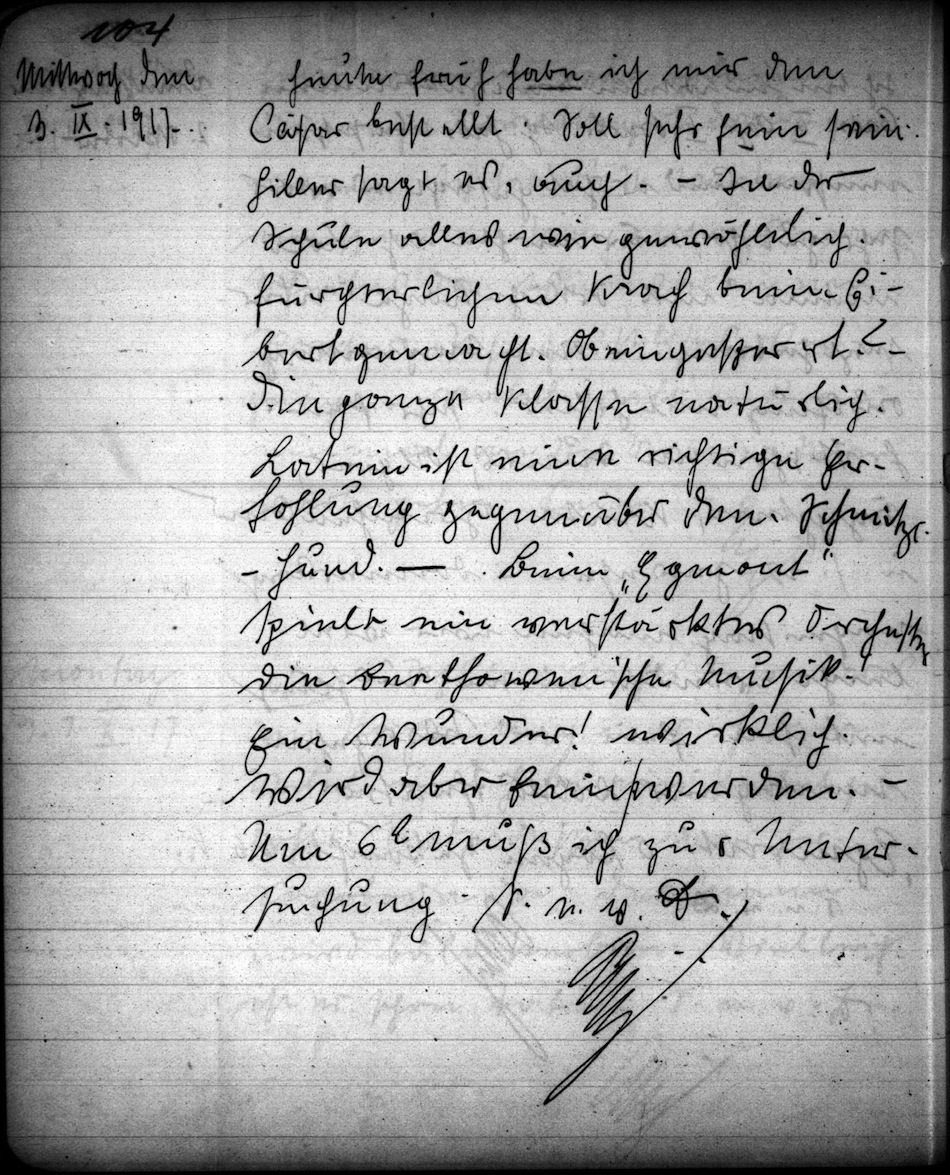 104
Mittwoch den
3. IX. 1917.
Heute früh habe ich mir den
Cäsar bestellt. Soll sehr fein sein.
Hiller sagt es, auch. – In der
Schule alles wie gewöhlnlich.
Fürchterlichen Krach beim Gi-
bert gemacht. Ob eingesperrt? –
Die ganze Klasse natürlich.
Latein ist eine richtige Er-
hohlung gegenüber den. Schmitz-
– Hund. — . Beim „Egmont"
spielt ein verstärktes Orchester
die Beethovenische Musik!
Ein Wunder! wirklich.
Wird aber fein werden. –
Um 6h muß ich zur Unter-
suchung. S. u. w. D.